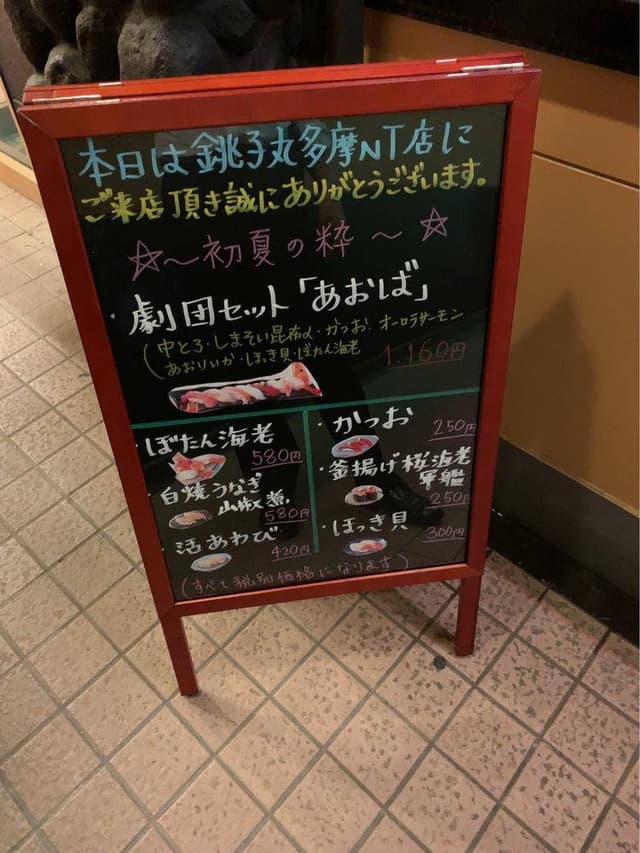 本日は銚子丸多摩NT店に
ご来店頂き誠にありがとうございます。
☆～初夏の粋～☆
・劇団セット「あおば」
(中とろ・しまそい昆布〆・かつお・オーロラサーモン
あおりいか・ほっき貝・ぼたん海老
1.160円
・ぼたん海老
580円
・白焼うなぎ
山椒煮
580円
・活あわび
420円
・かつお
250円
・釜揚げ桜海老
軍艦
250円
・ほっき貝
300円
(すべて税別価格になります)